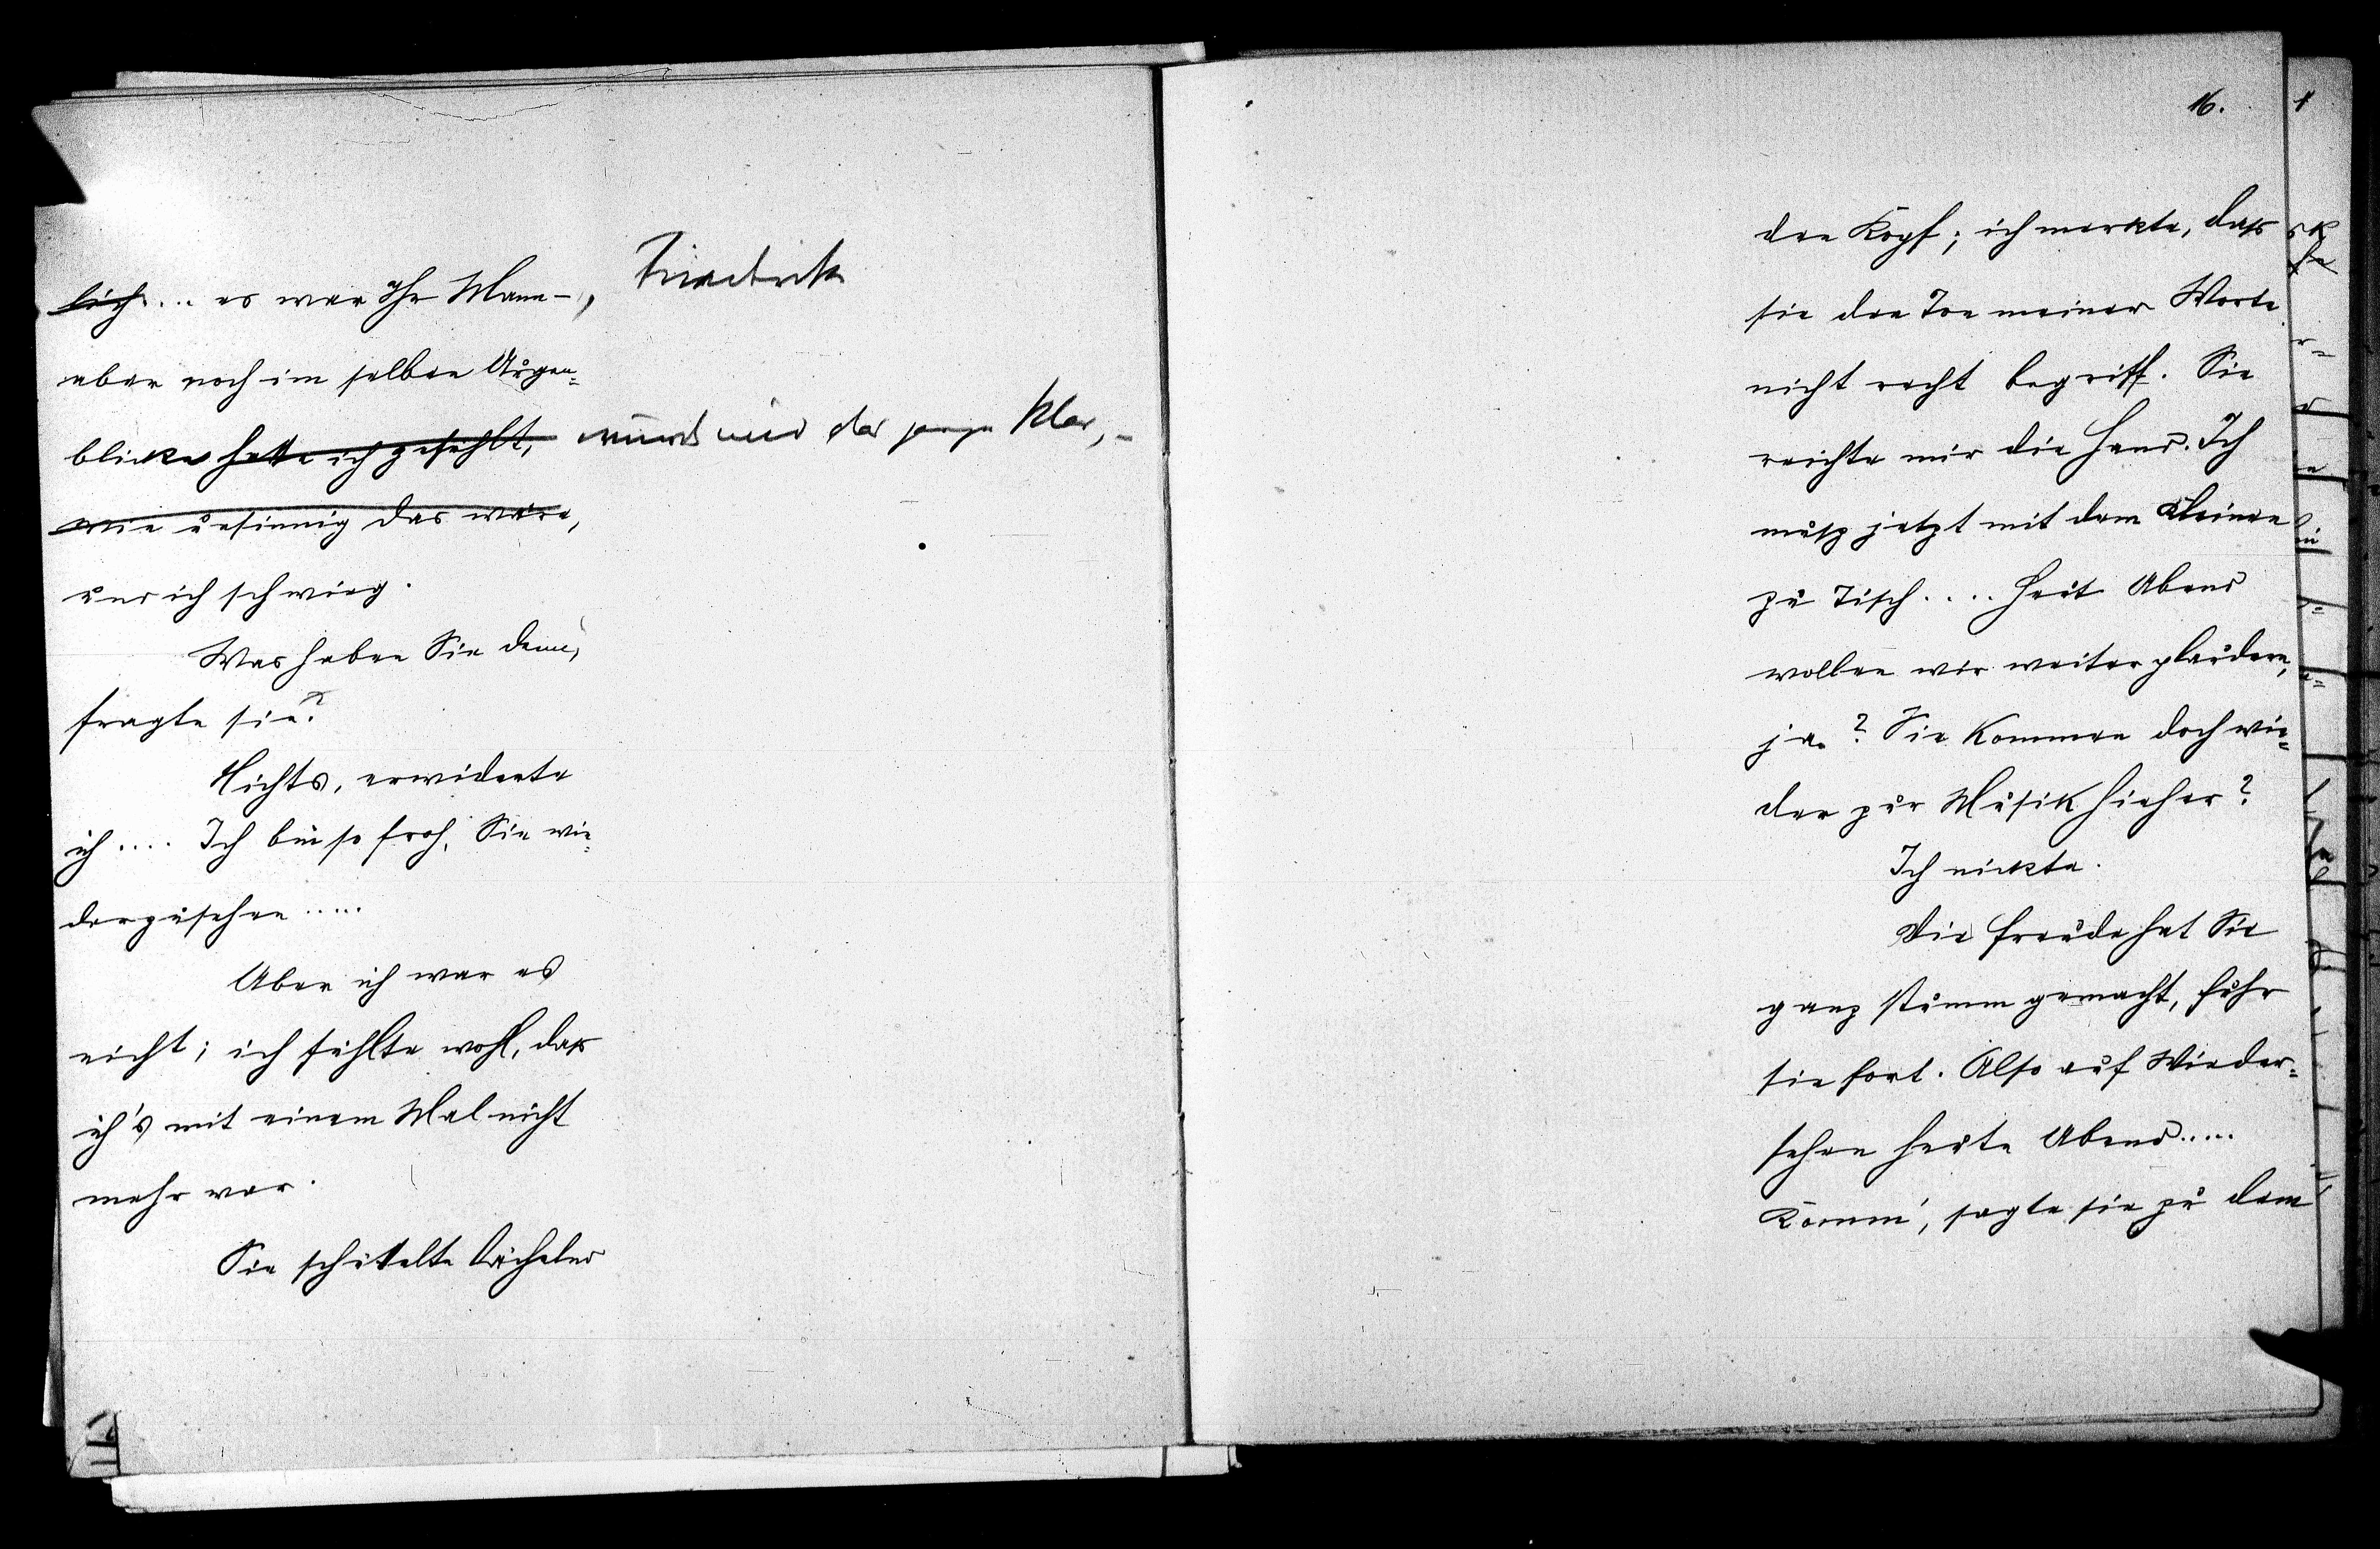 lich.... es war Ihr Mann –, Friederike
aber noch im selben Augen-
blicke hatte ich gefühlt, wurde mir das ganze klar, –
wie unsinnig das wäre,
und ich schwieg.
Was haben Sie denn,
fragte sie?
Nichts, erwiderte
ich .... Ich bin so froh, Sie wie-
derzusehen .....
Aber ich war es
nicht; ich fühlte wohl, dass
ich's mit einem Mal nicht
mehr war.
Sie schüttelte lächelnd
16.
den Kopf; ich merkte, dass
sie den Ton meiner Worte
nicht recht begriff. Sie
reichte mir die Hand. Ich
muss jetzt mit dem Kleinen
zu Tisch .... Heut Abend
wollen wir weiter plaudern,
ja? Sie kommen doch wie-
der zur Musik hieher?
Ich nickte.
Die Freude hat Sie
ganz stumm gemacht, fuhr
sie fort. Also auf Wieder-
sehen heute Abend .....
Komm', sagte sie zu dem